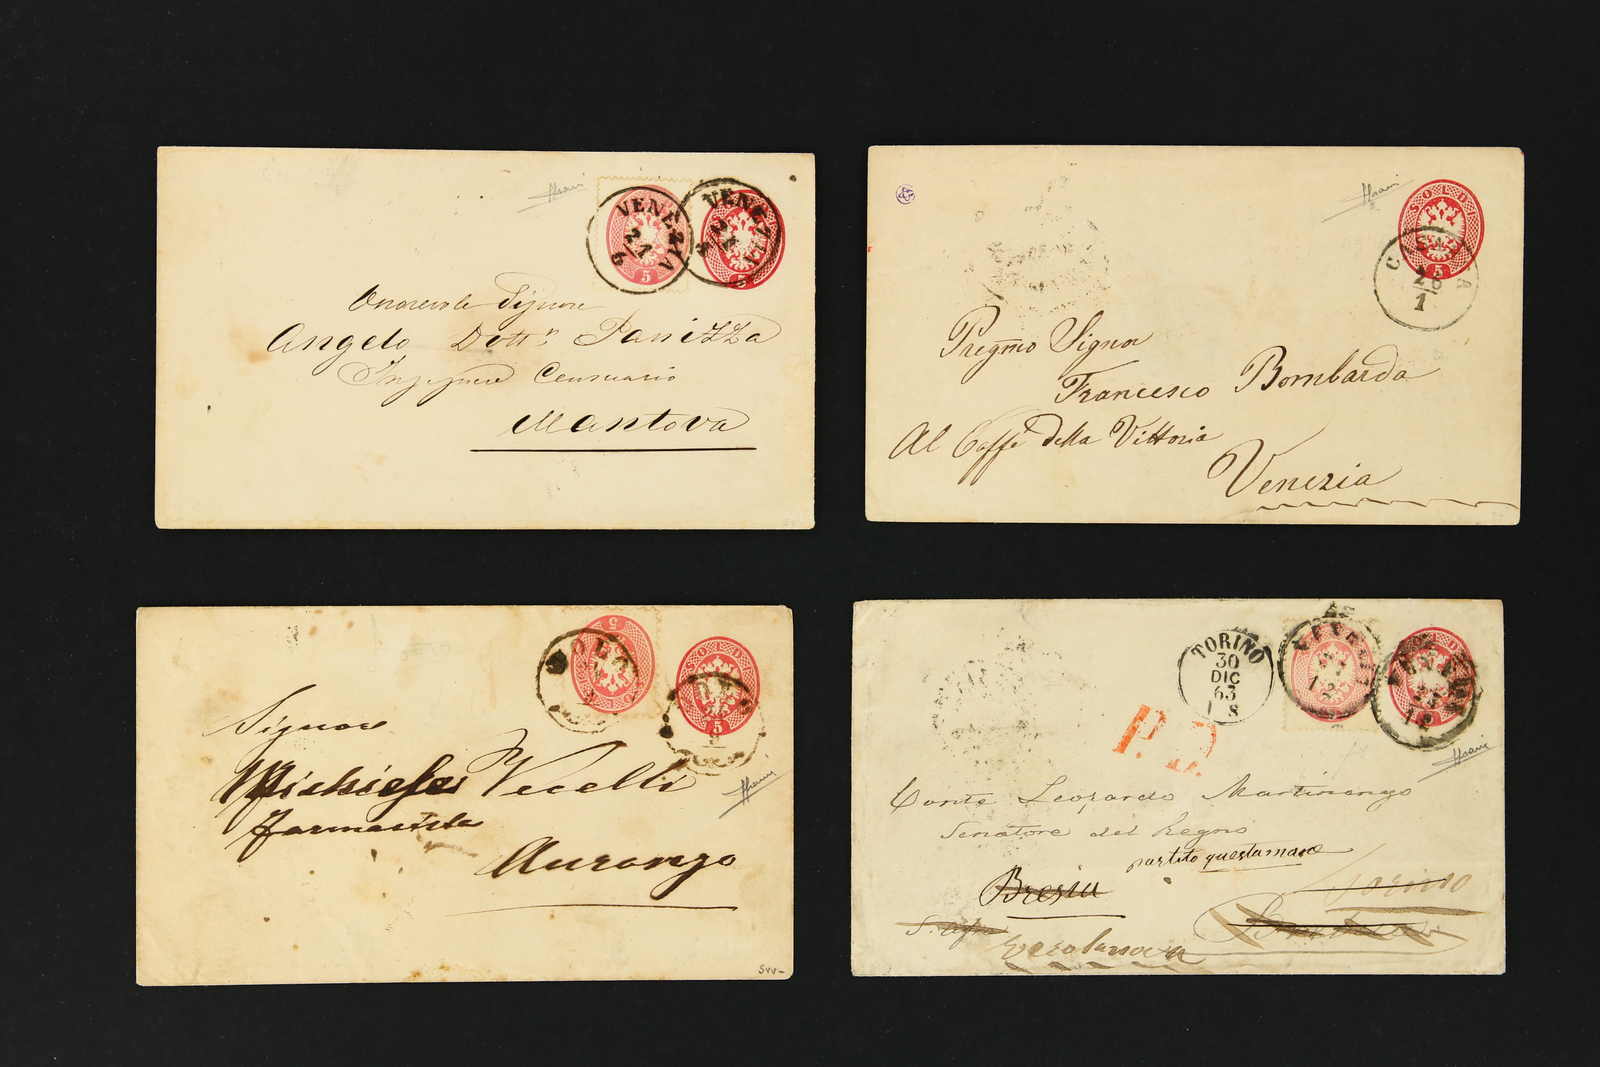 VENEZIA
21
6
5
VENEZIA
21
6
Onorevole Signore
Angelo Dottr. Panizza
Ingegnere Censuario
Mantova
SOLDI
5
26
1
Pregmo Signor
Francesco Bombarda
Al Caffè della Vittoria
Venezia
5
5
Signore
Michiele Vecelli
farmacista
Auronzo
TORINO
30
DIC
63
P.D.
VENEZIA
12
12
Conte Leopardo Martinengo
Senatore del Regno
partito questa mane
Torino
Brescia